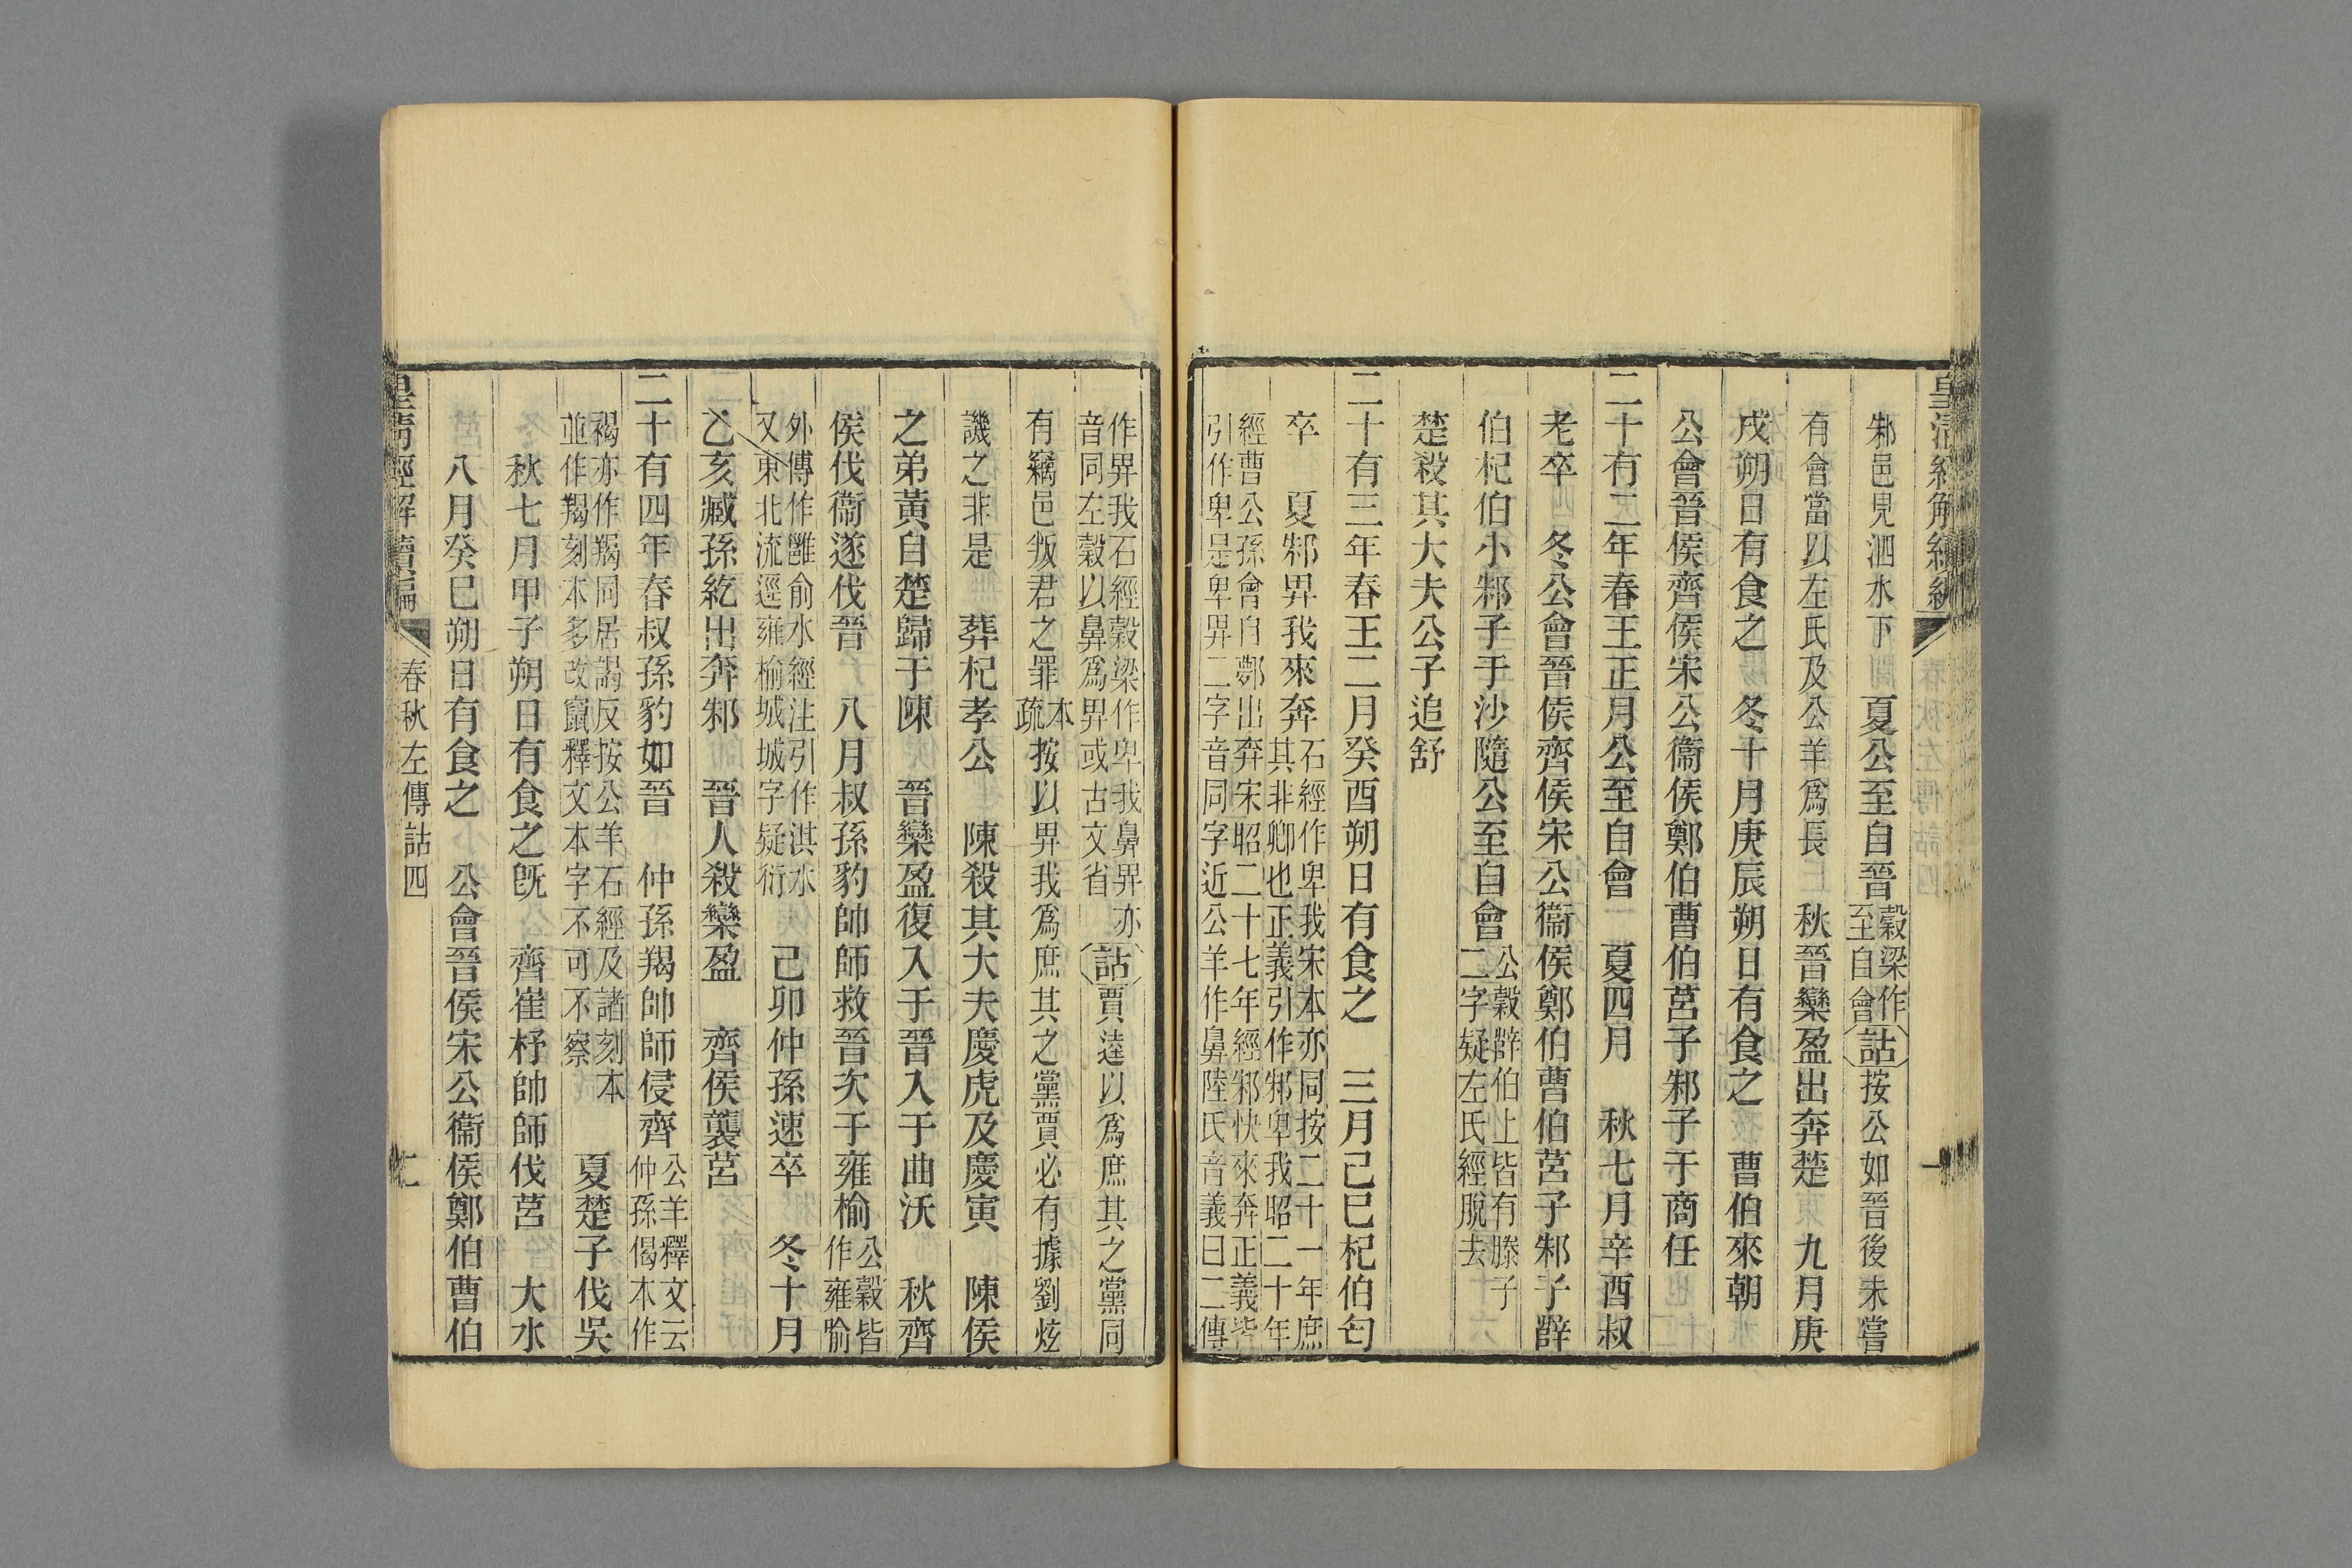 皇清經解續編
邾邑見泗水下　夏公至自晉穀梁作至自會詁按公如晉後未嘗
有會當以左氏及公羊爲長　秋晉欒盈出奔楚　九月庚
戌朔日有食之　冬十月庚辰朔日有食之　曹伯來朝
公會晉侯齊侯宋公衞侯鄭伯曹伯莒子邾子于商任
二十有二年春王正月公至自會　夏四月　秋七月辛酉叔
老卒　冬公會晉侯齊侯宋公衞侯鄭伯曹伯莒子邾子薛
伯杞伯小邾子于沙隨公至自會公穀薛伯上皆有滕子二字疑左氏經脫去
楚殺其大夫公子追舒
二十有三年春王二月癸酉朔日有食之　三月己巳杞伯匄
卒　夏邾畀我來奔石經作卑我宋本亦同按二十一年庶其非卿也正義引作邾卑我昭二十年
經曹公孫會自鄸出奔宋昭二十七年經邾快來奔正義皆引作卑是卑畀二字音同字近公羊作鼻陸氏音義曰二傳
作畀我石經穀梁作卑我鼻畀亦音同左穀以鼻爲畀或古文省詁賈逵以爲庶其之黨同
有竊邑叛君之罪本疏按以畀我爲庶其之黨賈必有據劉炫
譏之非是　葬杞孝公　陳殺其大夫慶虎及慶寅　陳侯
之弟黃自楚歸于陳　晉欒盈復入于晉入于曲沃　秋齊
侯伐衞遂伐晉　八月叔孫豹帥師救晉次于雍榆公穀皆作雍喻
外傳作雝俞水經注引作淇水又東北流逕雍榆城城字疑衍　己卯仲孫速卒　冬十月
乙亥臧孫紇出奔邾　晉人殺欒盈　齊侯襲莒
二十有四年春叔孫豹如晉　仲孫羯帥師侵齊公羊釋文云仲孫偈本作
褐亦作羯同居謁反按公羊石經及諸刻本並作羯刻本多改竄釋文本字不可不察　夏楚子伐吳
秋七月甲子朔日有食之旣　齊崔杼帥師伐莒　大水
八月癸巳朔日有食之　公會晉侯宋公衞侯鄭伯曹伯
皇清經解續編　春秋左傳詁四